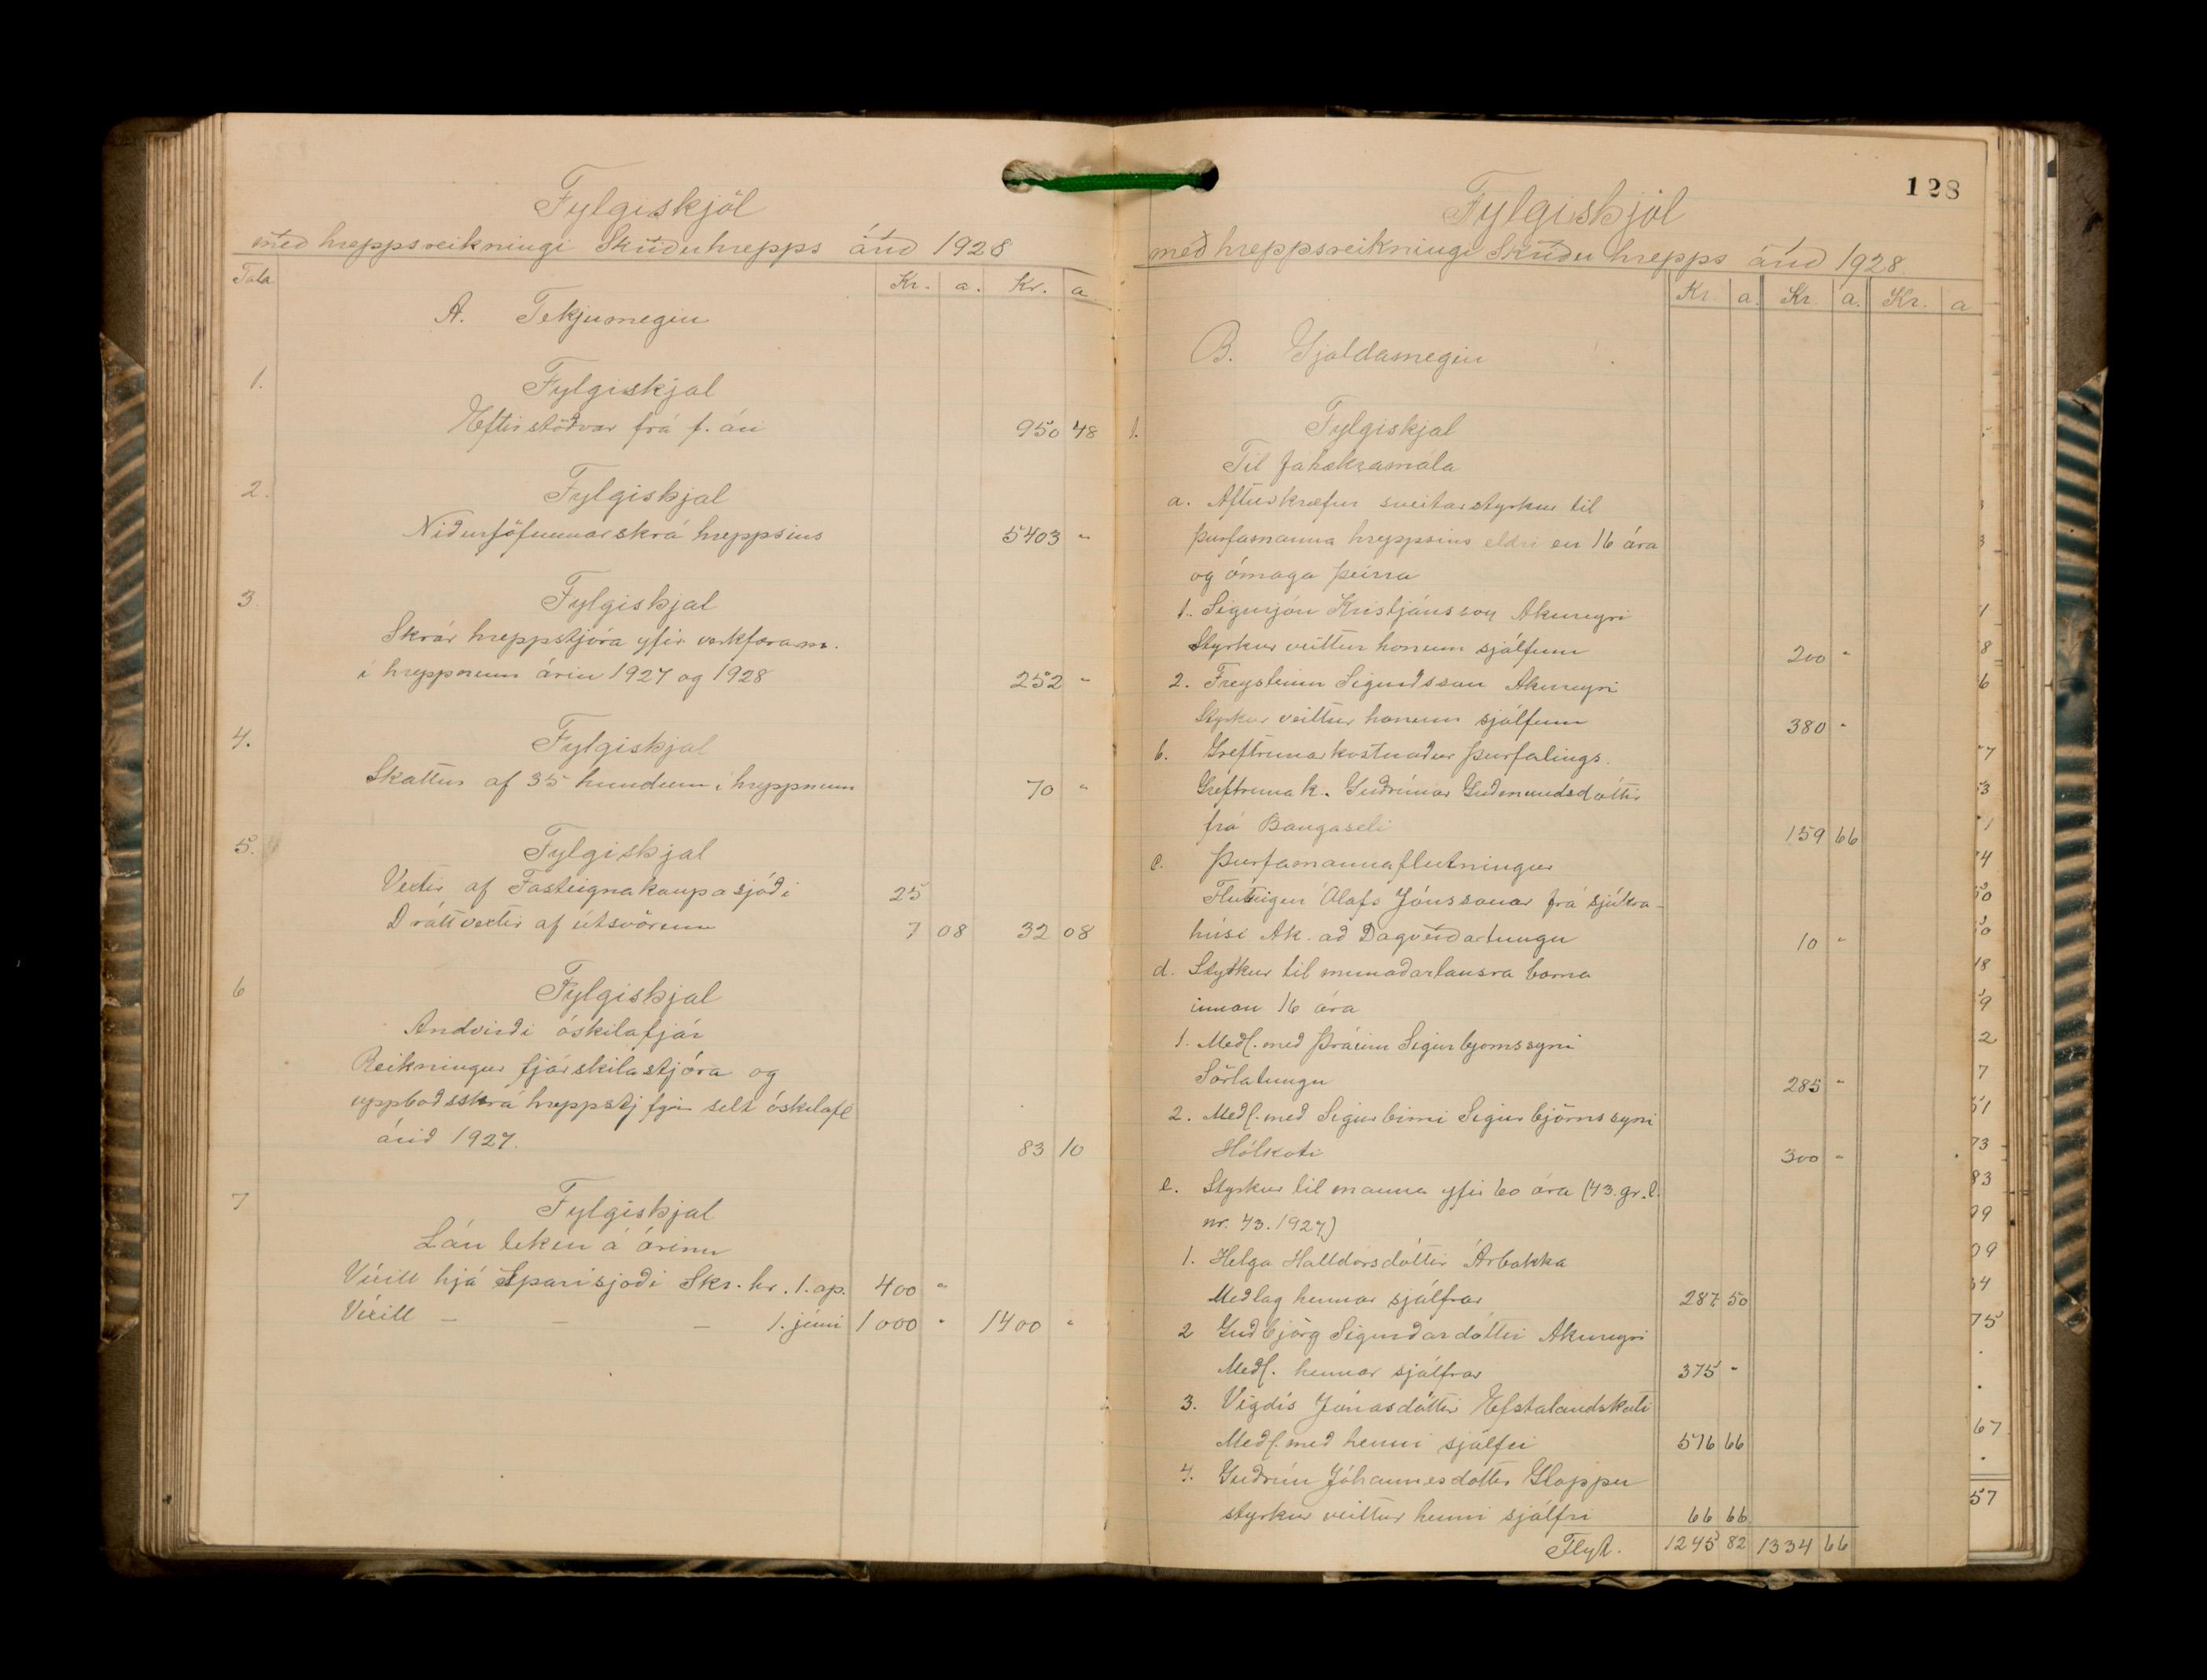 Fylgiskjöl
með hreppsreikningi Skriðuhrepps árið 1928
Tala Kr. a. Kr. a.
A. Tekjumegin
1. Fylgiskjal
Eftirstöðvar frá f. ári 950 48
2. Fylgiskjal
Niðurjöfnunarskrá hreppsins 5403 "
3. Fylgiskjal
Skrár hreppstjóra yfir verkfæram.
í hreppnum árin 1927 og 1928 252 "
4. Fylgiskjal
Skattur af 35 hundum í hreppnum 70 "
5. Fylgiskjal
Vextir af Fasteignakaupasjóði 25
Dráttvextir af útsvörum 7 08 32 08
6 Fylgiskjal
Andvirði óskilafjár
Reikningur fjárskilastjóra og
uppboðsskrá hreppstj fyrir selt óskilafé
árið 1927. 83 10
7 Fylgiskjal
Lán tekin á árinu
Víxill hjá Sparisjóði Skr.hr. 1. ap. 400 "
Víxill – – – 1. júní 1000 " 1400 "
128
Fylgiskjöl
með hreppsreikningi Skriðuhrepps árið 1928
Kr. a. Kr. a. Kr. a
B. Gjaldamegin
1. Fylgiskjal
Til fátækramála
a. Afturkræfur sveitarstyrkur til
þurfamanna hreppsins eldri en 16 ára
og ómaga þeirra
1. Sigurjón Kristjánsson Akureyri
Styrkur veittur honum sjálfum 200 "
2. Freysteinn Sigurðsson Akureyri
Styrkur veittur honum sjálfum 380 "
b. Greftrunarkostnaður þurfalings.
Greftrunark. Guðrúnar Guðmundsdóttir
frá Baugaseli 159 66
c. Þurfamannaflutningur
Flutnigur Ólafs Jónssonar frá sjúkra-
húsi Ak. að Dagverðartungu 10 "
d. Styrkur til munaðarlausra barna
innan 16 ára
1. Meðl. með Þráinn Sigurbjornssyni
Sörlatungu 285 "
2. Meðl. með Sigurbirni Sigurbjörnssyni
Hólkoti 300 "
e. Styrkur til manna yfir 60 ára (43. gr. l.
nr. 43. 1927)
1. Helga Halldórsdóttir Árbakka
Meðlag hennar sjálfrar 287 50
2 Guðbjörg Sigurðardóttir Akureyri
Meðl. hennar sjálfrar 375 "
3. Vigdís Jónasdóttir Efstalandskoti
Meðl. með henni sjálfri 516 66
4. Guðrún Jóhannesdóttir Gloppu
styrkur veittur henni sjálfri 66 66
Flyt. 1245 82 1334 66